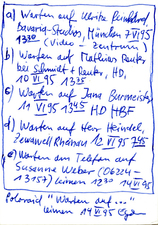 a) Warten auf Ulrike
Bavaria-Studios, München 7 VI 95
13³⁰ (Video - Zentrum)
b) Warten auf Mathias Rauts,
bei Schmidt + Rauts, HD,
10 VI 95 13³⁵
c) Warten auf Jana Burmeister
11 VI 95 13⁴⁵ HD HBF
d) Warten auf Herr Heindel,
Rheinau 12 VI 95 7⁴⁵
e) Warten am Telefon auf
Susanne Weber (06224-
13157) Leimen 12³⁰ 14 VI 95
Polaroid "Warten auf ..."
Leimen 14 VI 95